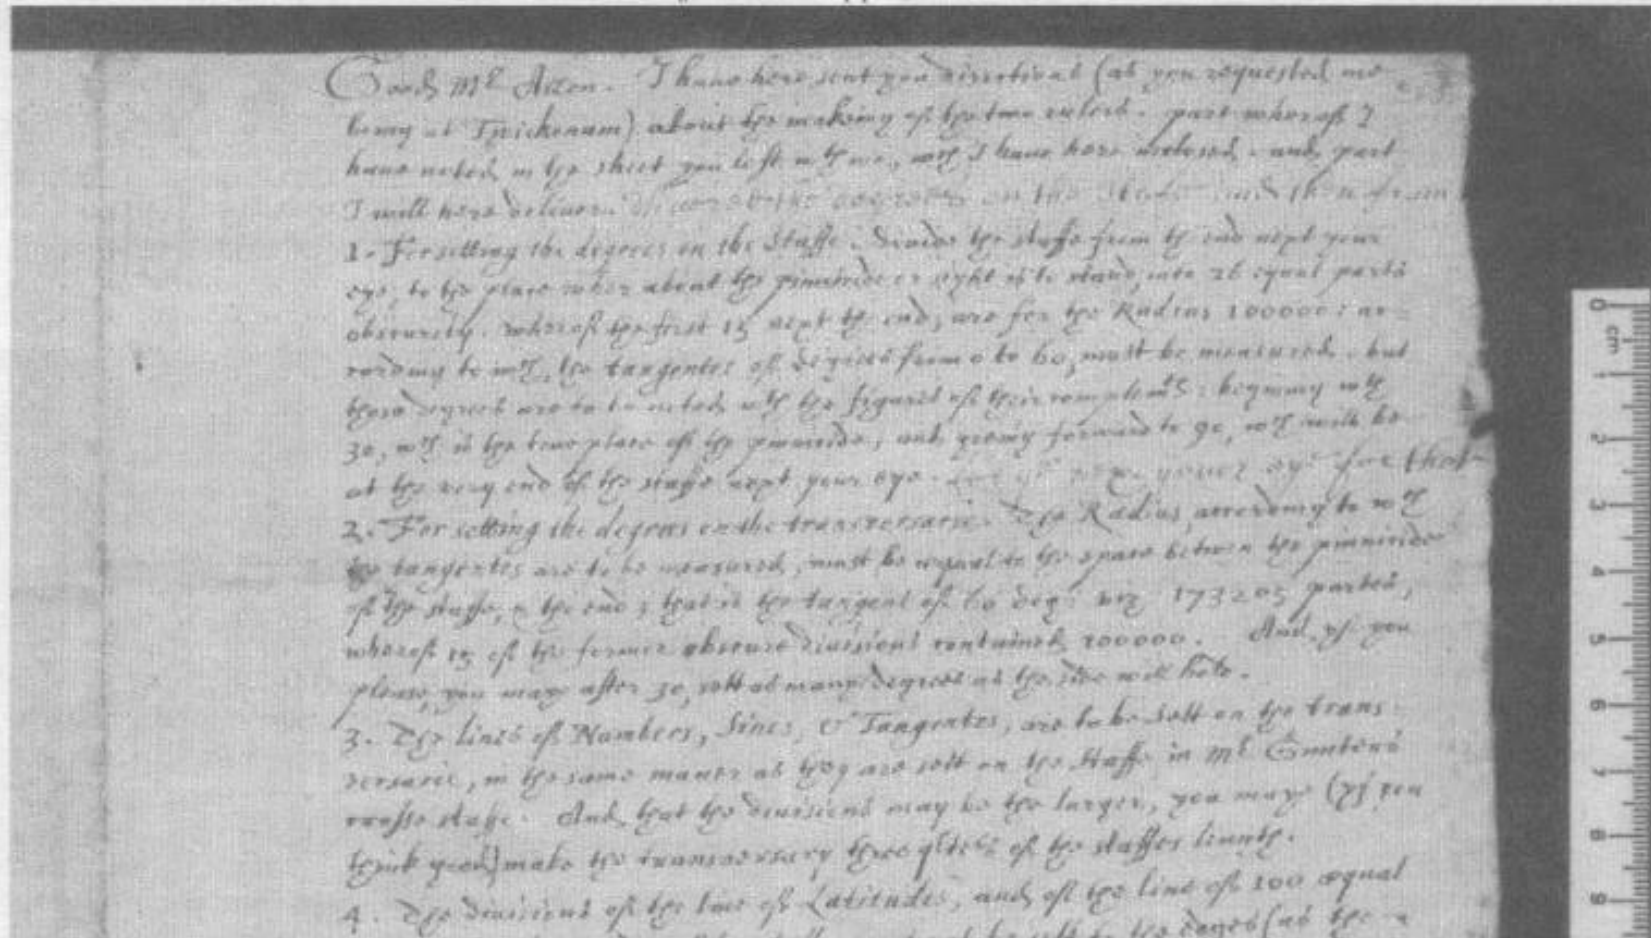 Good Mr Allen. I haue here sent you directions (as you requested me
being at Twickenam) about the making of the two rulers. part whereof I
haue noted in the sheet you left wth me, wch I haue here inclosed. and part
I will here deliuer. the degrees on the
1. For setting the degrees on the Staffe. Deuide the staffe from the end next your
eye, to the place wher about the pinnicide or sight is to stand, into 26 equal parts
obscurely. wherof the first 15 next the end, are for the Radius 100000: ac-
cording to wch, the tangentes of degrees from 0 to 60, must be measured. but
those degrees are to be noted wth the figures of their complemts: beginning wth
30, wch is the true place of the pinnicide, and going forward to 90, wch will be
at the very end of the staffe next your eye. your eye for that
2. For setting the degrees on the transversarie. The Radius according to wch
the tangentes are to be measured, must be æqual to the space betwen the pinnicide
of the staffe, & the end; that is the tangent of 60 deg: viz 173205 partes,
wherof 15 of the former obscure diuisions contained 100000. And, yf you
please, you maye after 30, sett as many degrees as the side will hold.
3. The lines of Numbers, Sines, & Tangentes, are to be sett on the trans-
versarie, in the same maner as they are sett on the staffe in Mr Gunters
crosse staffe. And that the diuisions may be the larger, you maye (yf you
think good) make the transversary three of the staffes length.
4. The diuisions of the line of Latitudes, and of the line of 100 æqual
the edges (as the